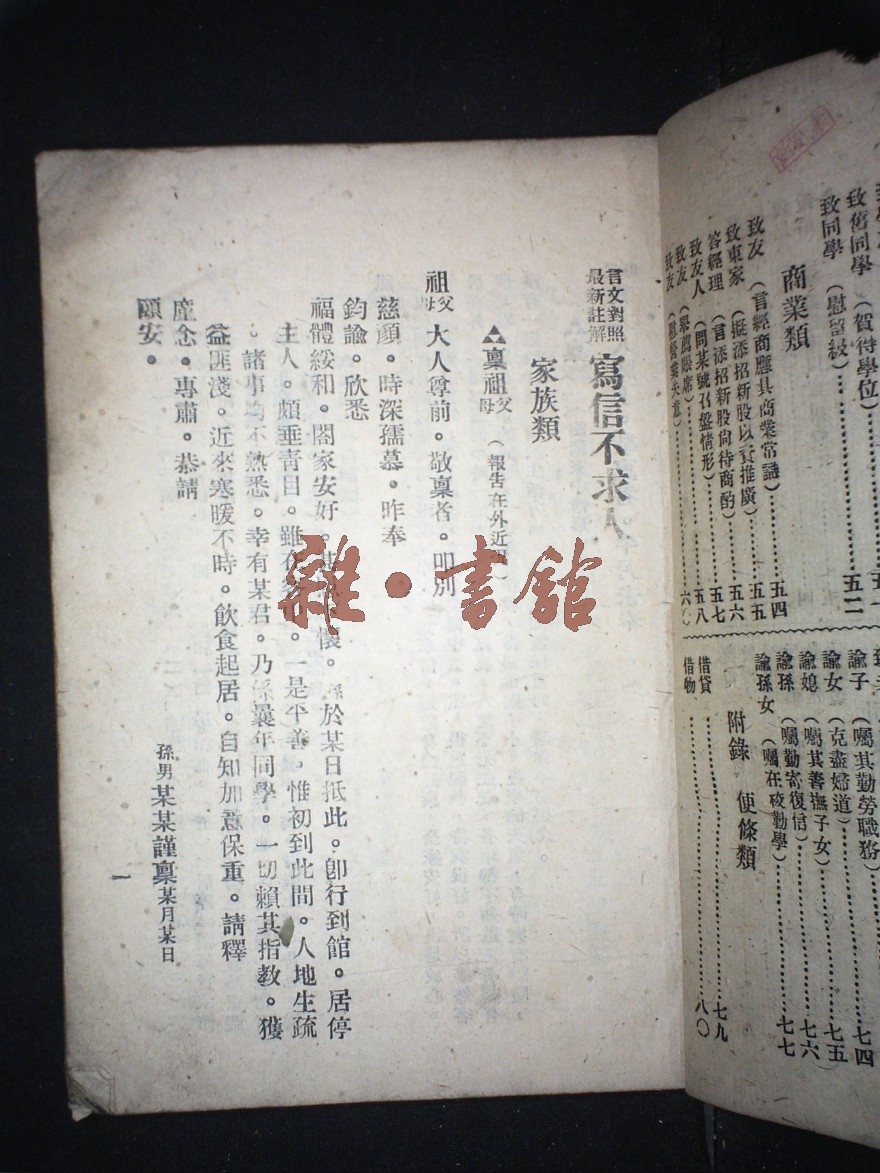 致舊同學（賀得學位）……五二
致同學（慰留級）
商業類
致友（言經商應具商業常識）……五四
致東家（擬添招新股以資推廣）……五五
答經理（言添招新股尙待商酌）……五六
致友人（問某號召盤情形）……五七
致友（舉薦賬席）……五八
致友（慰營業失意）……六
諭子（囑其勤勞職務）……七四
諭女（克盡婦道）……七五
諭媳（囑其善撫子女）……七六
諭孫（囑勤寄復信）
諭孫女（囑在校勤學）……七七
附錄　便條類
借貸……七九
借物……八〇
言文對照
最新註解
寫信不求人
家族類
▲稟祖父母（報告在外近
祖父母大人尊前。敬稟者。叩別
慈顏。時深孺慕。昨奉
鈞諭。欣悉
福體綏和。闔家安好。懷。孫於某日抵此。卽行到館。居停
主人。頗垂靑目。雖在。一是平善。惟初到此間。人地生疏
。諸事均不熟悉。幸有某君。乃孫曩年同學。一切賴其指教。獲
益匪淺。近來寒暖不時。飲食起居。自知加意保重。請釋
廑念。專肅。恭請
頤安。
孫男某某謹稟某月某日
一
雜·書館